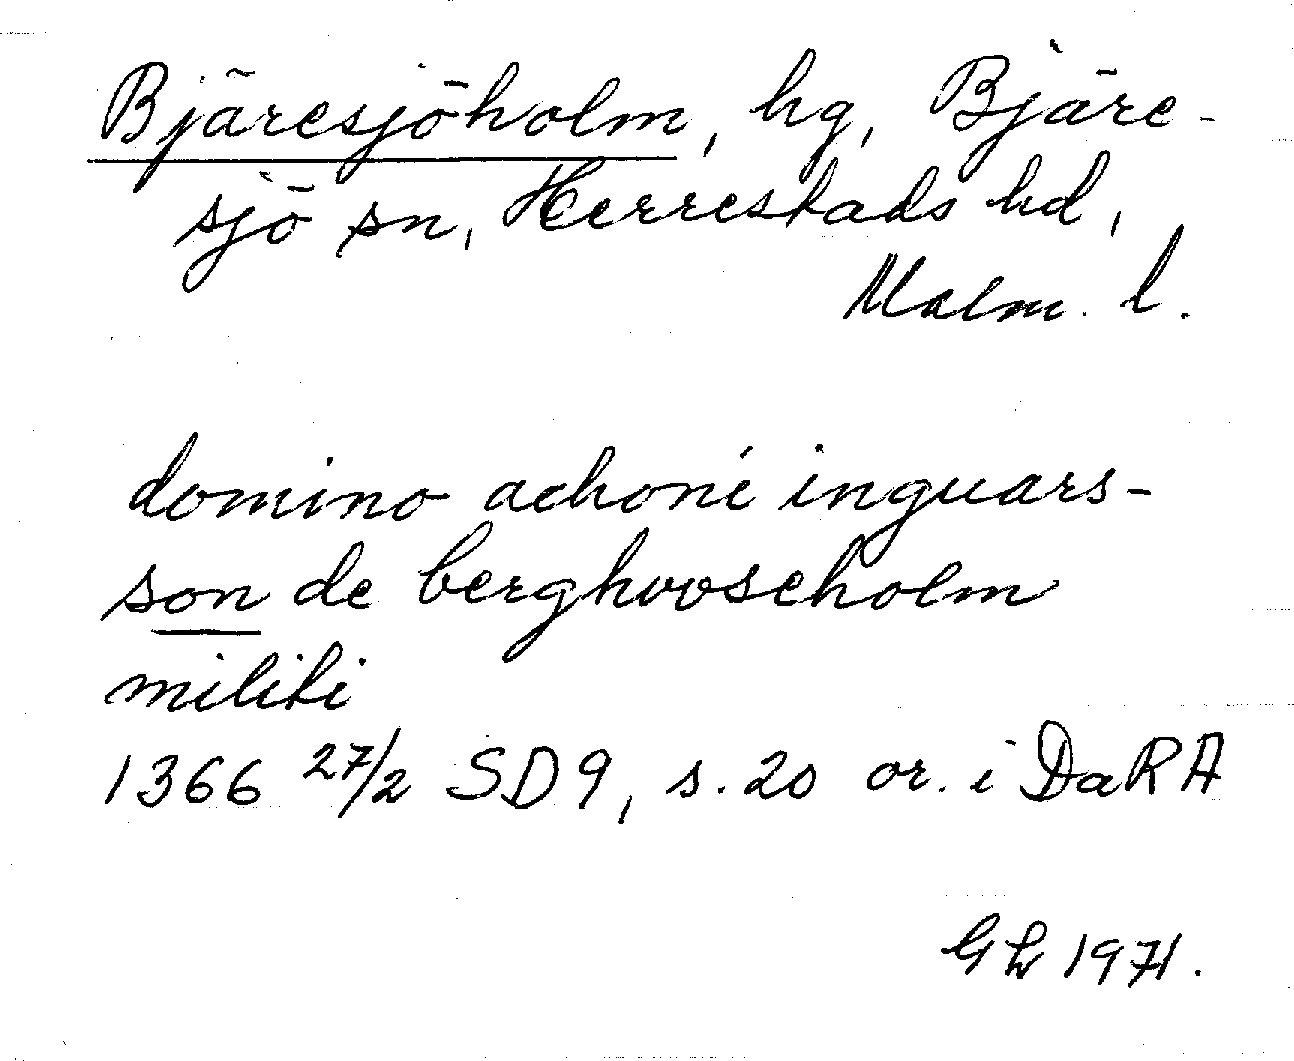 Bjäresjöholm, hg, Bjäre-
sjö sn, Herrestads hd,
Malm. l.
domino achoni inguars-
son de berghwoseholm
militi
1366 27/2 SD9, s. 20 or. i DaRA
Gh 1971.